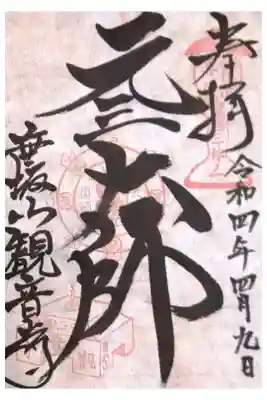 奉拝
令和四年四月九日
元三大師
山観音寺